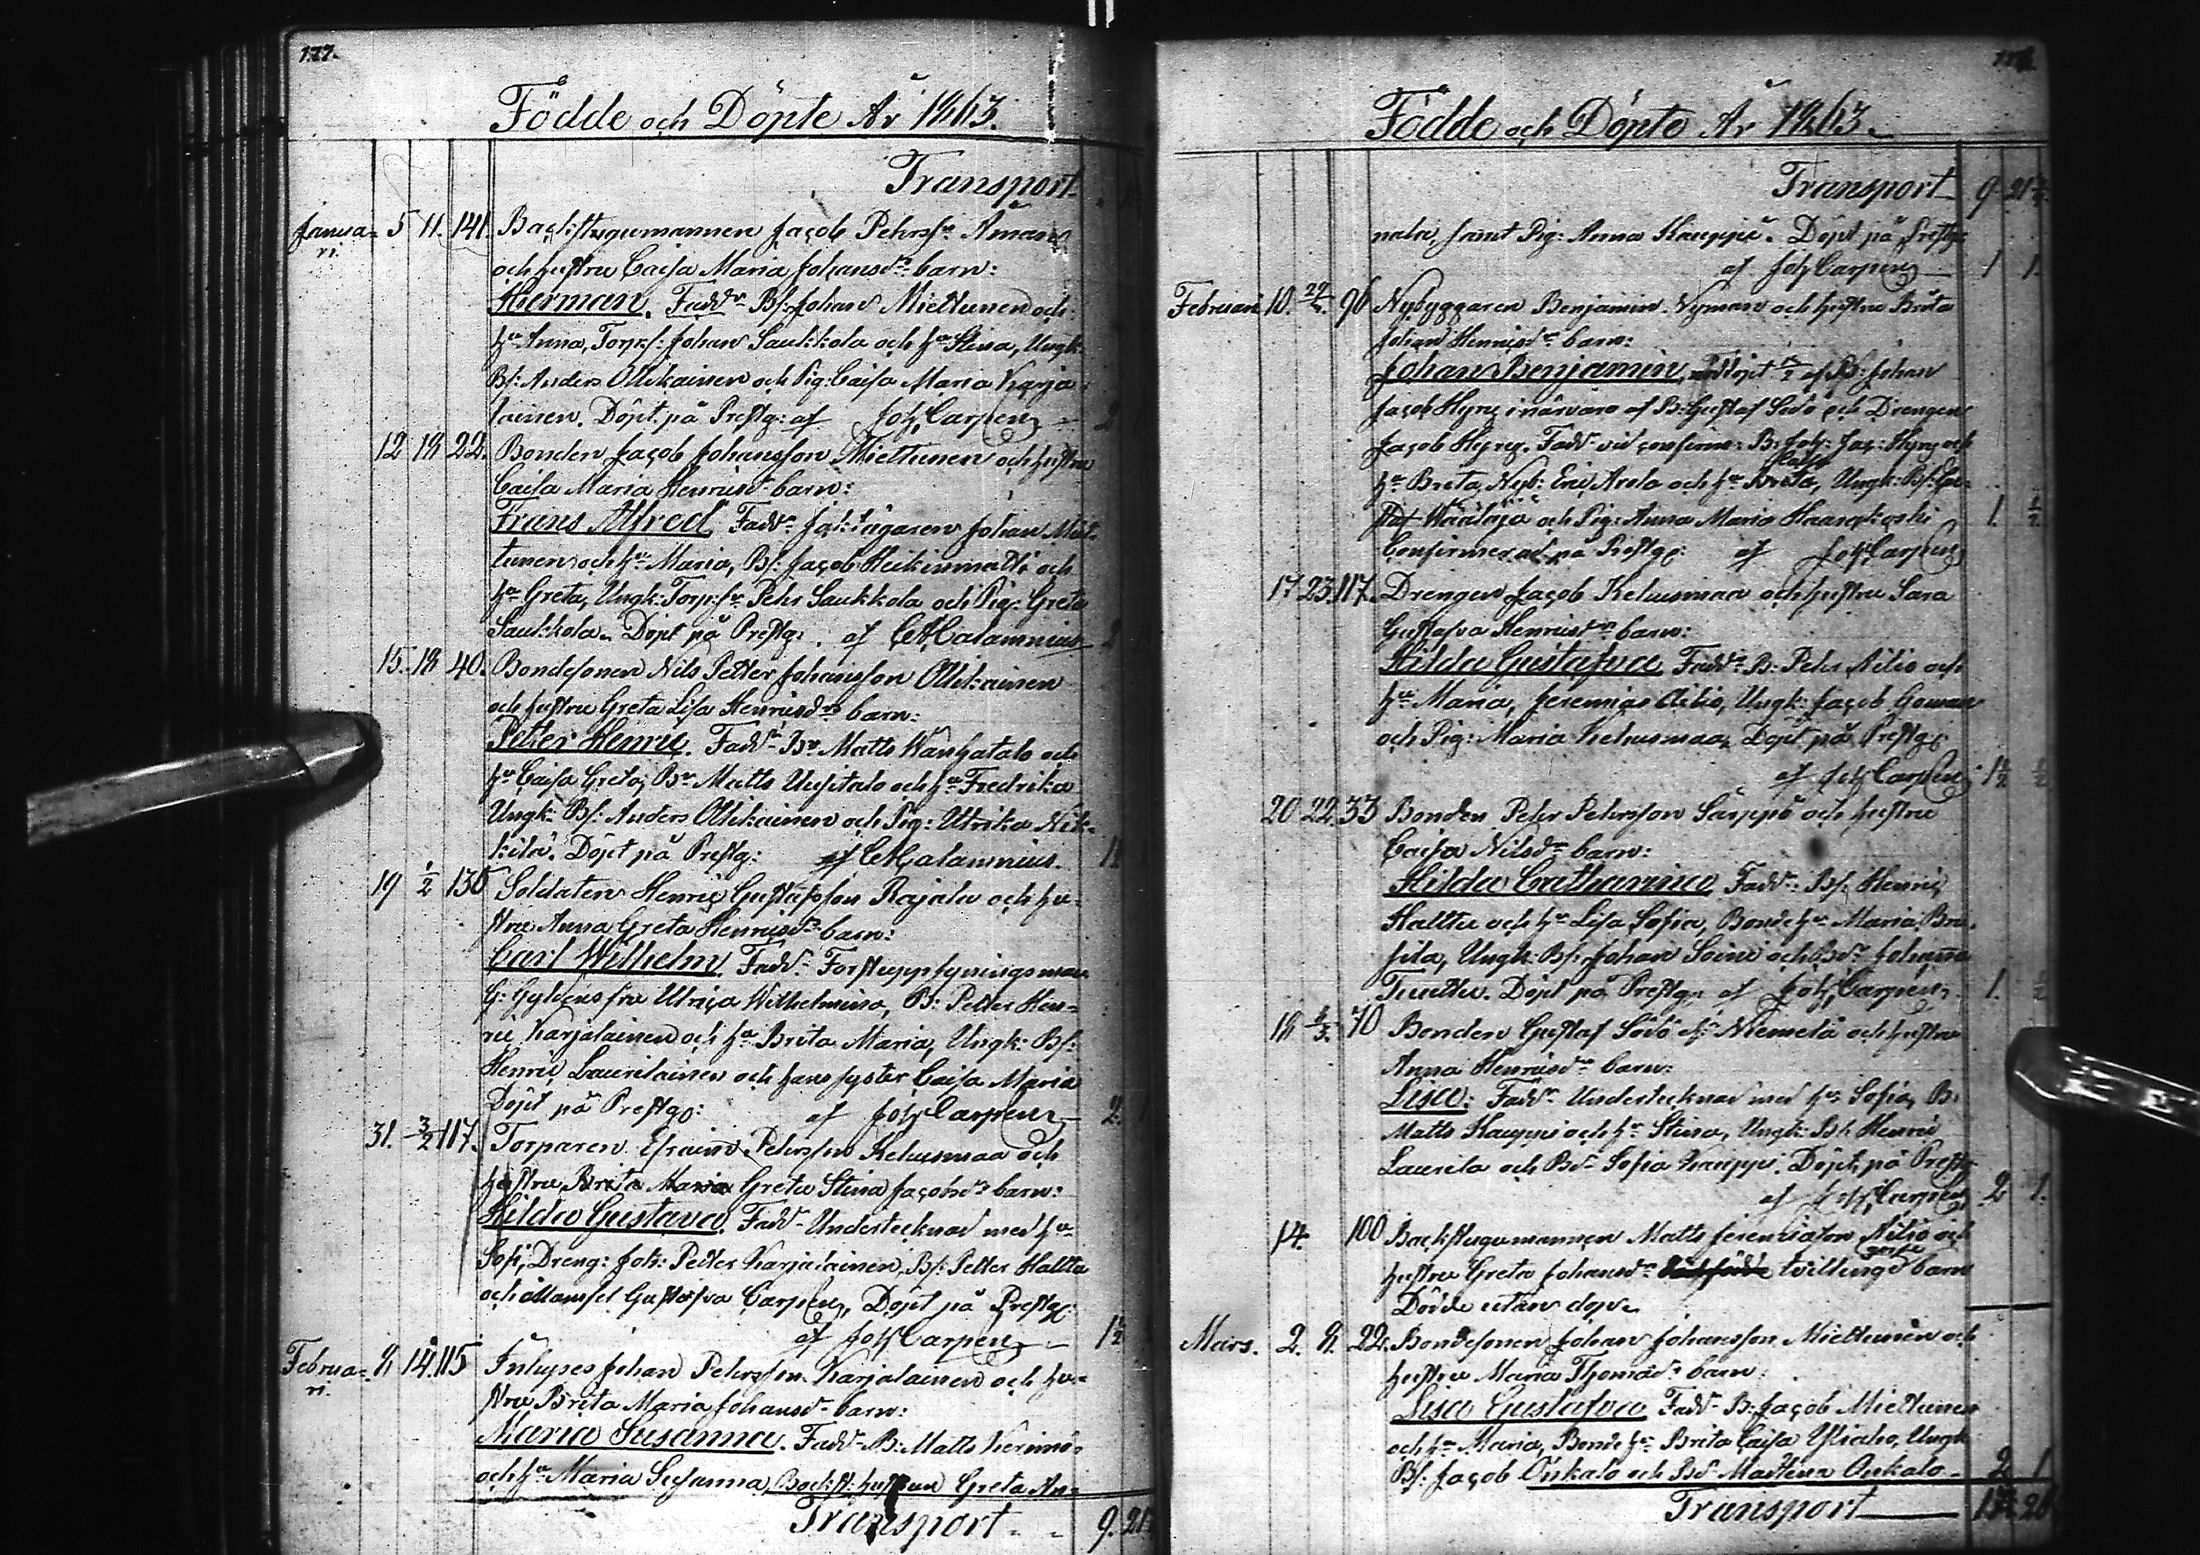 177.
Födde och Döpte År 1863.
Transport
Janua= 5 11. 141. Backstugumannen Jacob Pehrss: Åman
ri. och hustru Caisa Maria Johansdr barn:
Herman. Faddr Bs: Johan Miettunen och
hu Anna, Torps: Johan Saukkola och hu Stina, Ungk:
Bs: Anders Ollikainen och Pig: Caisa Maria Karja
lainen. Döpt på Prestg: af Joh Carpen 2
12 18 22. Bonden Jacob Johansson Miettunen och hustru
Caisa Maria Henricsdr barn:
Frans Alfred Faddr Johan Miet-
tunen och hu Maria, Bs: Jacob Heikinmatti och
hu Greta, Ungk: Torp:sn Pehr Saukkola och Pig: Greta
Saukkola. Döpt på Prestg: af Calamnius 2
15. 18 40. Bondesonen Nils Petter Johansson Ollikainen
och hustru Greta Lisa Henricsdr barn:
Petter Henric. Faddr Br Matts Wanhatalo och
hu Caisa Greta, Br Matts Uusitalo och hu Fredrika
Ungk: Bs: Anders Ollikainen och Pig: Ulrika Nik-
kilä. Döpt på Prestg: af Calamnius.
19 1/2 136 Soldaten Henric Gustafsson Rajala och hu=
stru Anna Greta Henricsdr barn:
Carl Wilhelm. Faddr Forstuppsyningsman
G: Gyldens fru Ulrica Wilhelmina, B: Petter Hen=
ric Karjalainen och hu Brita Maria, Ungk: Bs:
Henric Laurilainen och hans syster Caisa Maria
Döpt på Prestg: af Joh Carpen 2.
31. 3/2 117. Torparen Efraim Pehrsson Kehusmaa och
hustru Brita Maria Greta Stina Jacobsdr barn:
Hilda Gustava. Faddr Undertecknad med hu
Sofi, Dreng: Joh: Petter Karjalainen, Bs: Petter Hallta
och Mamsel Gustafva Carpen, Döpt på Prestg:
af Joh Carpen 1 1/2
Februa= 8 14. 115 Inhyses Johan Pehrsson Karjalainen och hu=
ri. stru Brita Maria Johansdr barn:
Maria Susanna. Faddr B: Matts
och hu Maria Susanna, Backst: hustrun Greta An=
Transport 9. 21
Födde och Döpte År 1863.
Transport 9 21
nala, samt Pig: Anna Kauppi. Döpt på Prestg:
af Joh Carpen 1 1.
Februari 10. 96 Nybyggaren Benjamin Nyman och hustru Brita
Johan Henricsdr barn:
Johan Benjamin, nöddöpt af B: Johan
Jacob Hyry i närvaro af B: Gustaf Södö och Drengen
Jacob Hyry. Faddr vid confirm: B: Joh: Jac: Hyry och
hu Brita, Nyb: Eric Arola och hu Brita, Ungk: Bs:
och Pig: Anna Maria Haarakoski 1. 1/2
Confirmerad på Prestg: af Joh Carpen
17 23. 117. Drengen Jacob Kehusmaa och hustru Sara
Gustafva Henricsdr barn:
Hilda Gustafva Faddr: B: Pehr Ailio och
hu Maria, Jeremias Ailio, Ungk: Jacob
och Pig: Maria Kehusmaa, Döpt på Prestg:
af Joh Carpen 1 1/2 1/2
20 22. 33 Bonden Pehr Pehrsson Särppä och hustru
Caisa Nilsdr barn:
Hilda Catharina Faddr: Bs: Henric
Halttu och hu Lisa Sofia, Bonde hu Maria
sila, Ungk: Bs: Johan Soini och Bdr Johanna
Tuuttu. Döpt på Prestg: af Joh Carpen 1. 1/2
18 1/3. 70 Bonden Gustaf Södö Niemelä och hustru
Anna Henricsdr barn:
Lisa: Faddr Undertecknad med hu Sofia, B:
Matts Kauppi och hu Stina, Ungk: Bs: Henric
Laurila och Bdr Sofia Kauppi. Döpt på Prestg:
af Joh Carpen 2 1.
14. 100 Backstugumannen Matts Jeremiasson Ailio och
hustru Greta Johansdr tvillinge barn
Dödde utan dop.
Mars. 2. 8. 22. Bondesonen Johan Johansson Miettunen och
hustru Maria Thomasdr barn:
Lisa Gustafva Faddr B: Jacob Miettunen
och hu Maria, Bonde hu Brita Caisa Yliaho, Ungk:
Bs: Jacob Onkalo och Bdr Onkalo. 2 1
Transport